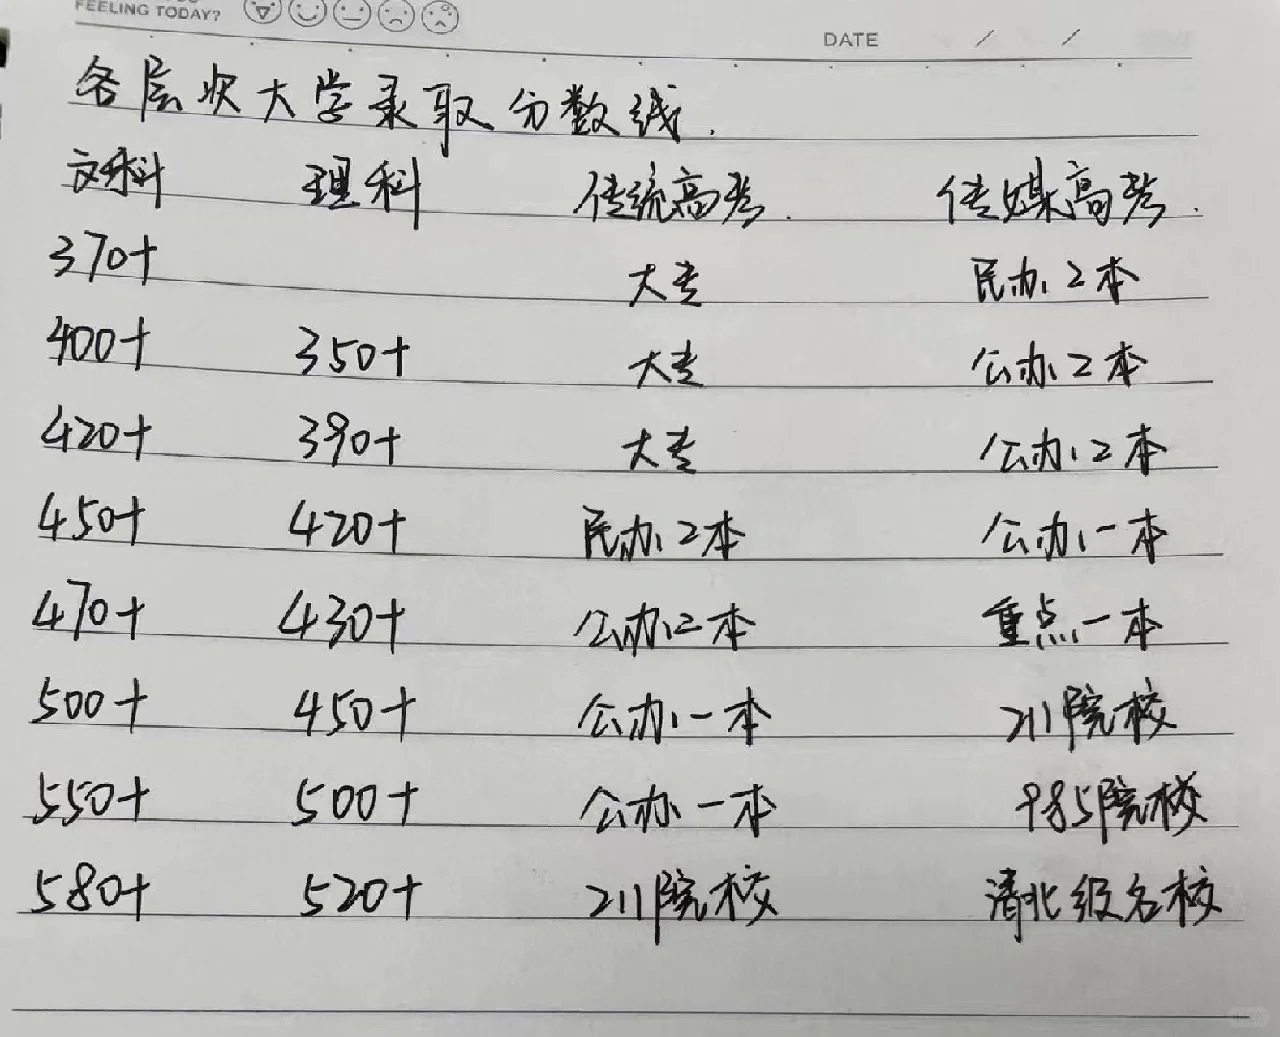 FEELING TODAY?
DATE / /
各层次大学录取分数线.
文科 理科 传统高考. 传媒高考.
370+ 大专 民办2本
400+ 350+ 大专 公办2本
420+ 390+ 大专 公办2本
450+ 420+ 民办2本 公办一本
470+ 430+ 公办二本 重点一本
500+ 450+ 公办一本 211院校
550+ 500+ 公办一本 985院校
580+ 520+ 211院校 清北级名校